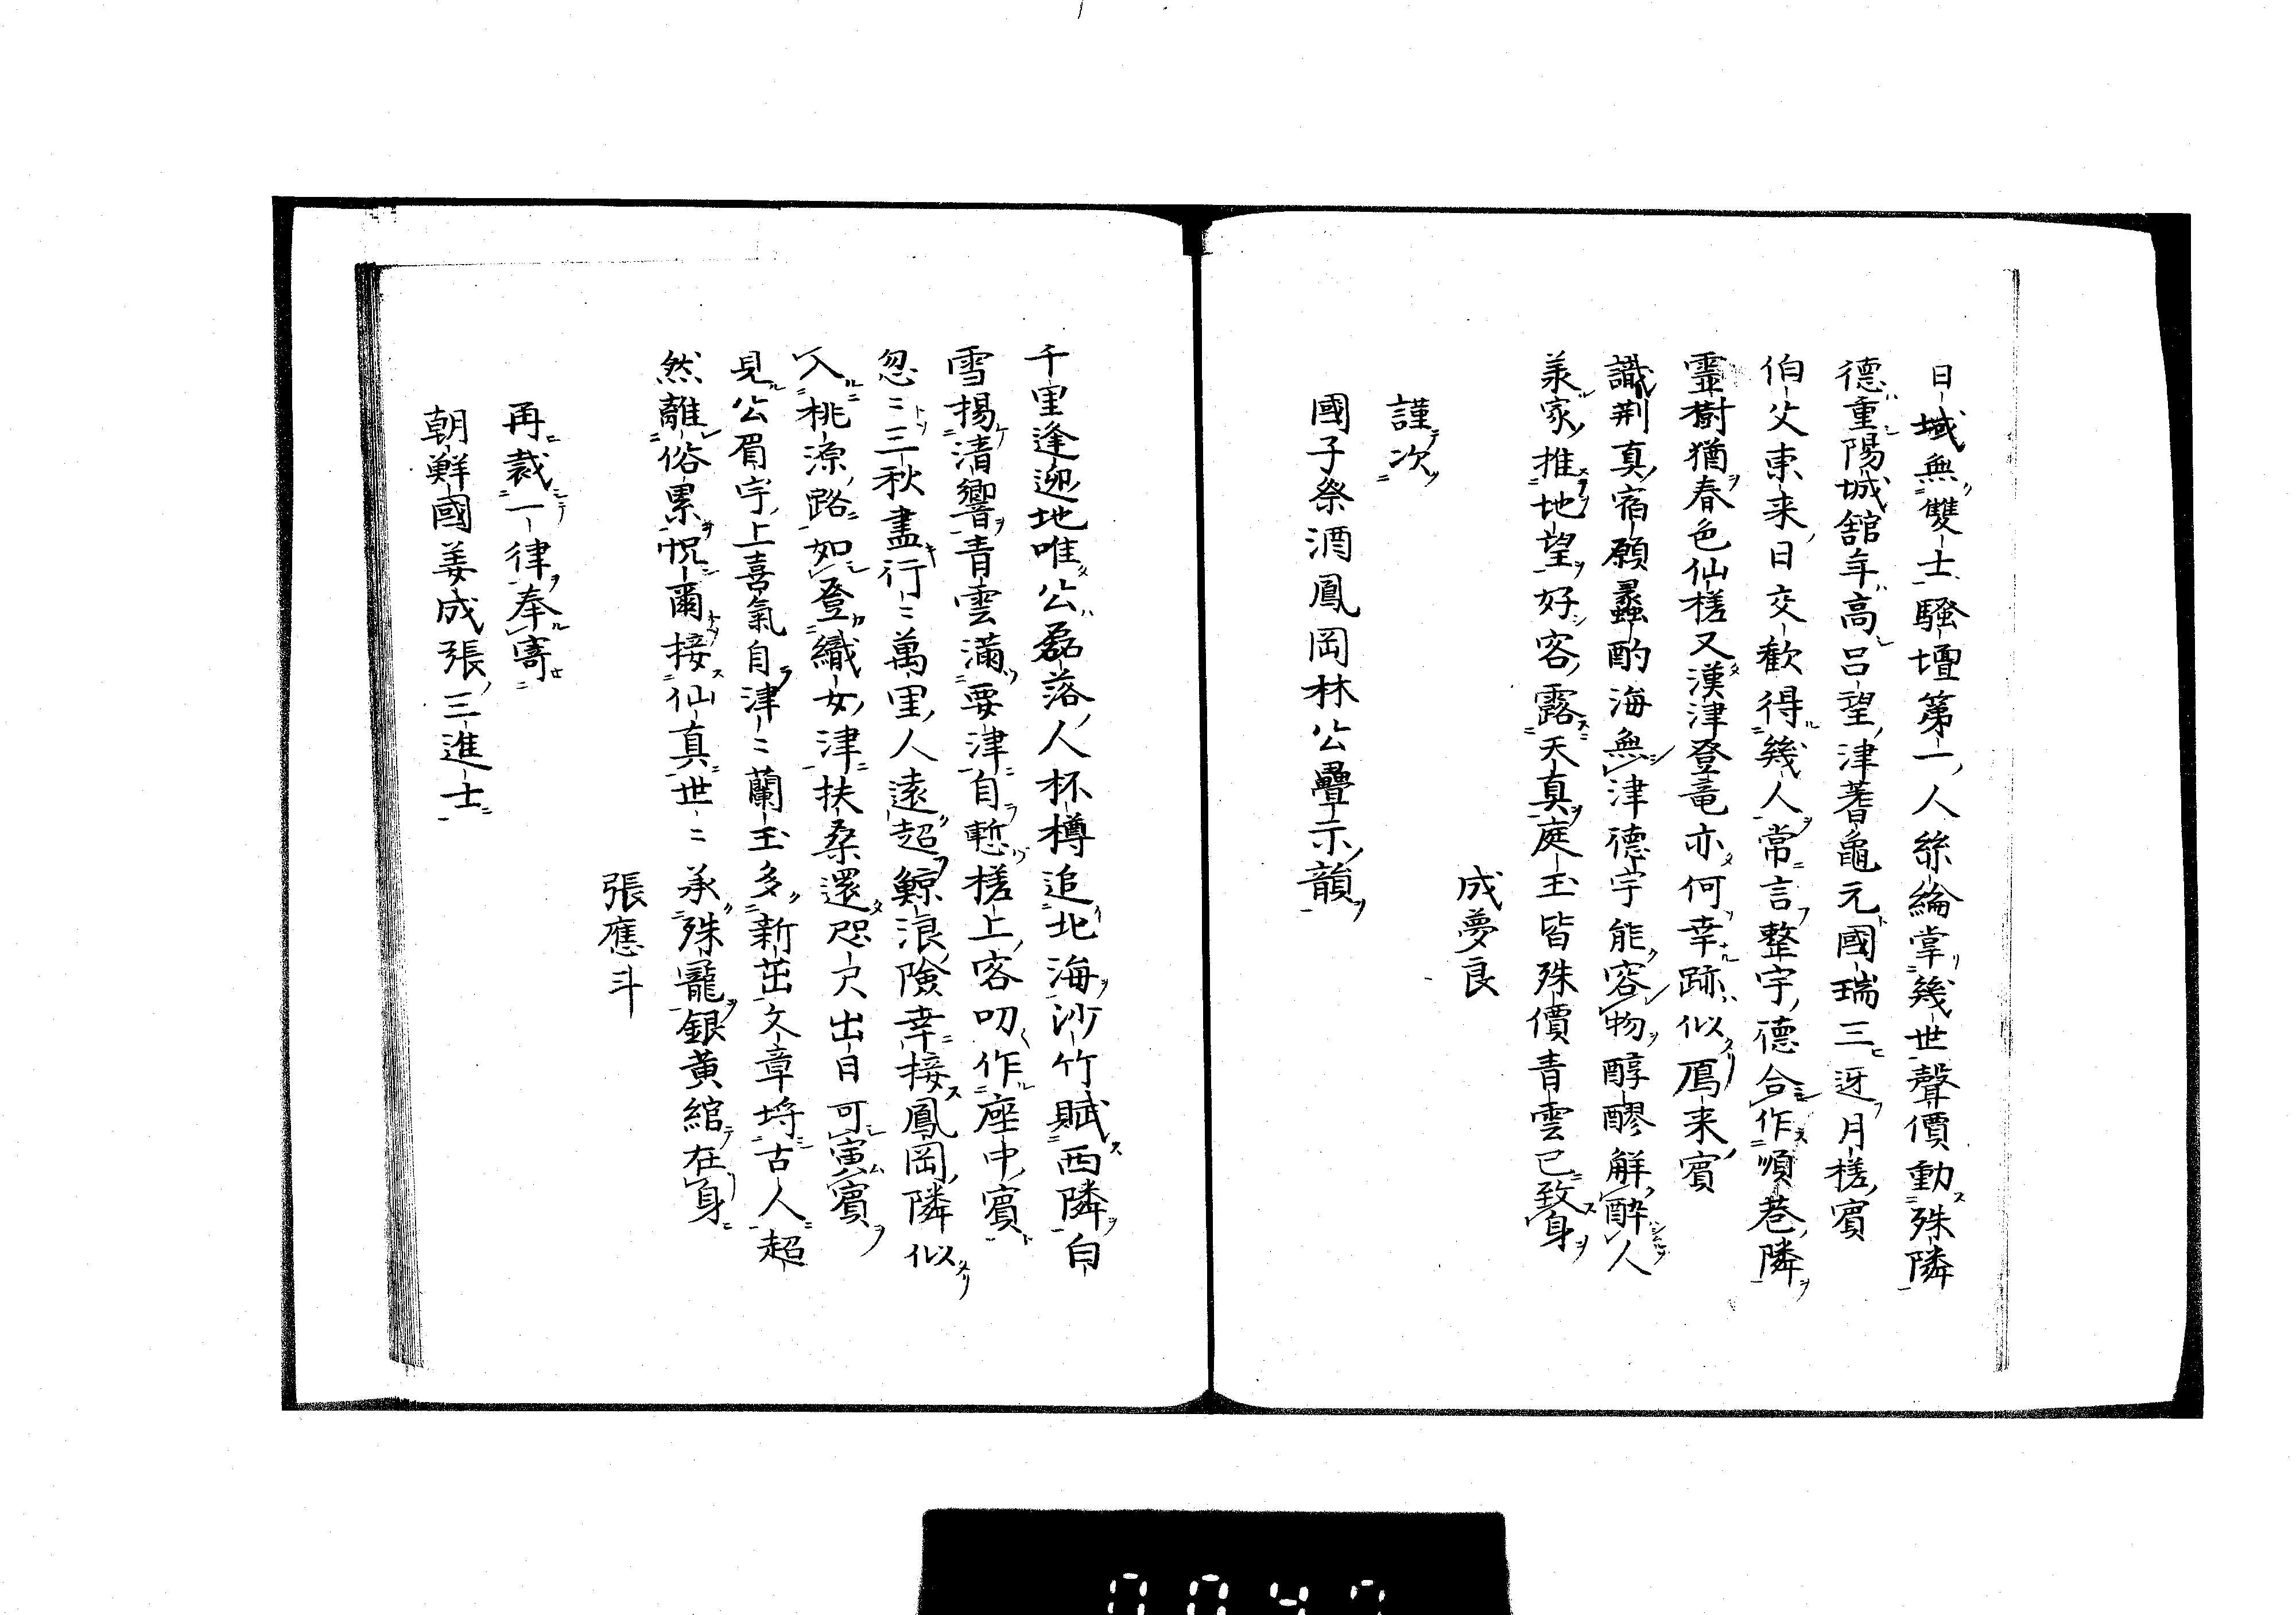 日域無雙士騷壇第一人絲綸掌幾世聲價動殊隣
德重陽城舘年高呂望津蓍龜元國瑞三迓月槎賓
伯父東来日交歡得幾人常言整宇德合作順巷隣
靈樹猶春色仙槎又漢津登竜亦何幸跡似鴈来賓
識荆真宿願蠡酌海無津德宇能容物醇醪解醉人
羕家推地望好客露天真庭玉皆殊價青雲已致身
成夢良
謹次
國子祭酒鳳岡林公疊示韻
千里逢迎地唯公磊落人杯樽追北海沙竹賦西隣白
雪揚清響青雲滿要津自慙槎上客叨作座中賓
忽〻三秋盡行〻萬里人遠超鯨浪險幸接鳳岡隣似
入桃源路如登織女津扶桑還咫尺出日可寅賓
見公眉宇上喜氣自津〻蘭玉多新茁文章埒古人超
然離俗累怳爾接仙真世〻承殊寵銀黃綰在身
張應斗
再裁一律奉寄
朝鮮國姜成張三進士